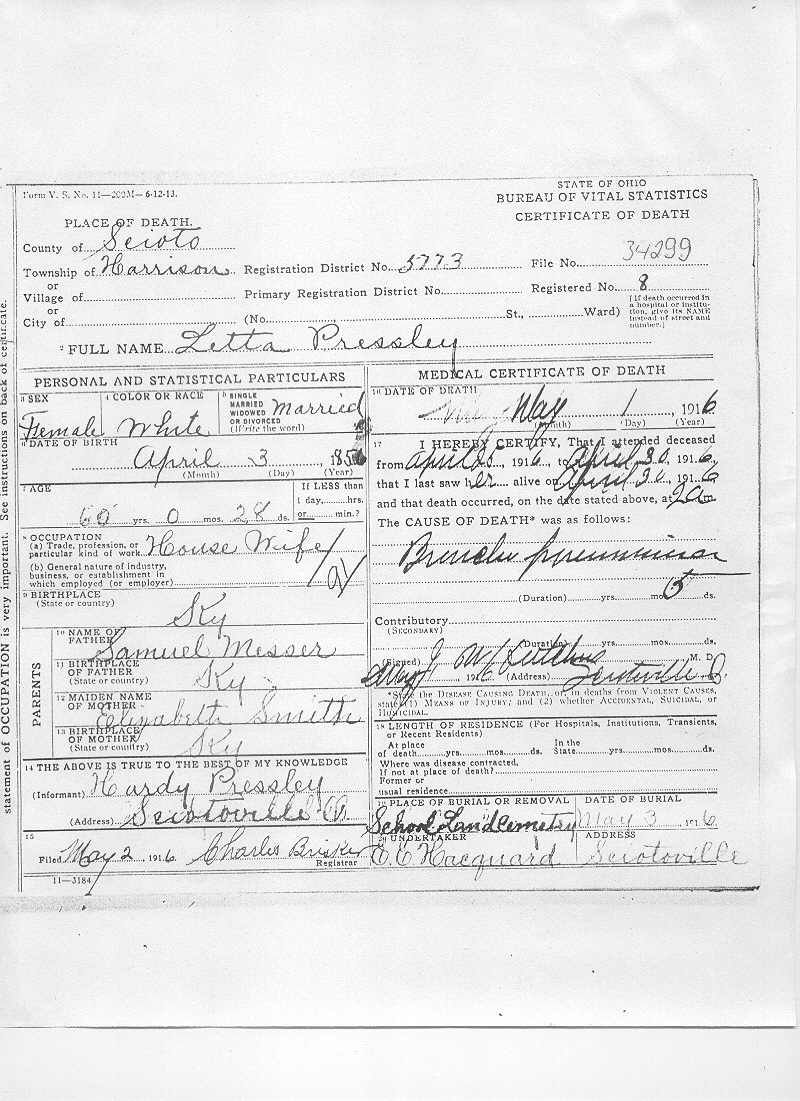 Form V. S. No. 11—200M—6-12-13.
STATE OF OHIO
BUREAU OF VITAL STATISTICS
CERTIFICATE OF DEATH
PLACE OF DEATH.
County of Scioto
Township of Harrison Registration District No. 5773 File No. 34299
or
Village of Primary Registration District No. Registered No. 8
or
City of (No. , St., Ward)
[If death occurred in
a hospital or institu-
tion, give its NAME
instead of street and
number.]
2 FULL NAME Letta Pressley
PERSONAL AND STATISTICAL PARTICULARS
3 SEX
Female
4 COLOR OR RACE
White
5 SINGLE
MARRIED
WIDOWED
OR DIVORCED
(Write the word)
Married
6 DATE OF BIRTH
April 3, 1856
(Month) (Day) (Year)
7 AGE
60 yrs. 0 mos. 28 ds.
If LESS than
1 day, hrs.
or min.?
8 OCCUPATION
(a) Trade, profession, or
particular kind of work House Wife
(b) General nature of industry,
business, or establishment in
which employed (or employer)
9 BIRTHPLACE
(State or country)
Ky
PARENTS
10 NAME OF
FATHER
Samuel Messer
11 BIRTHPLACE
OF FATHER
(State or country)
Ky
12 MAIDEN NAME
OF MOTHER
Elizabeth Smith
13 BIRTHPLACE
OF MOTHER
(State or country)
Ky
14 THE ABOVE IS TRUE TO THE BEST OF MY KNOWLEDGE
(Informant) Hardy Pressley
(Address) Sciotoville O
15
Filed May 2, 1916. Charles Brisker
Registrar
11—3184
MEDICAL CERTIFICATE OF DEATH
16 DATE OF DEATH
May 1, 1916
(Month) (Day) (Year)
17 I HEREBY CERTIFY, That I attended deceased
from April 25, 1916, to April 30, 1916
that I last saw her alive on April 30, 1916
and that death occurred, on the date stated above, at 9 am
The CAUSE OF DEATH* was as follows:
Broncho pneumonia
(Duration) yrs. mos. 5 ds.
Contributory
(SECONDARY)
(Duration) yrs. mos. ds.
(Signed) M. D.
May 1, 1916 (Address) Sciotoville O.
*State the DISEASE CAUSING DEATH, or, in deaths from VIOLENT CAUSES,
state (1) MEANS OF INJURY; and (2) whether ACCIDENTAL, SUICIDAL, or
HOMICIDAL.
18 LENGTH OF RESIDENCE (For Hospitals, Institutions, Transients,
or Recent Residents)
At place In the
of death yrs. mos. ds. State yrs. mos. ds.
Where was disease contracted,
If not at place of death?
Former or
usual residence
19 PLACE OF BURIAL OR REMOVAL
School Land Cemetry
DATE OF BURIAL
May 3, 1916
20 UNDERTAKER
E. E. Hacquard
ADDRESS
Sciotoville
statement of OCCUPATION is very important. See instructions on back of certificate.